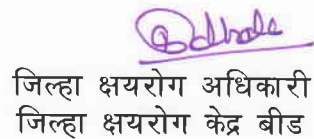 जिल्हा क्षयरोग अधिकारी
जिल्हा क्षयरोग केद्र बीड